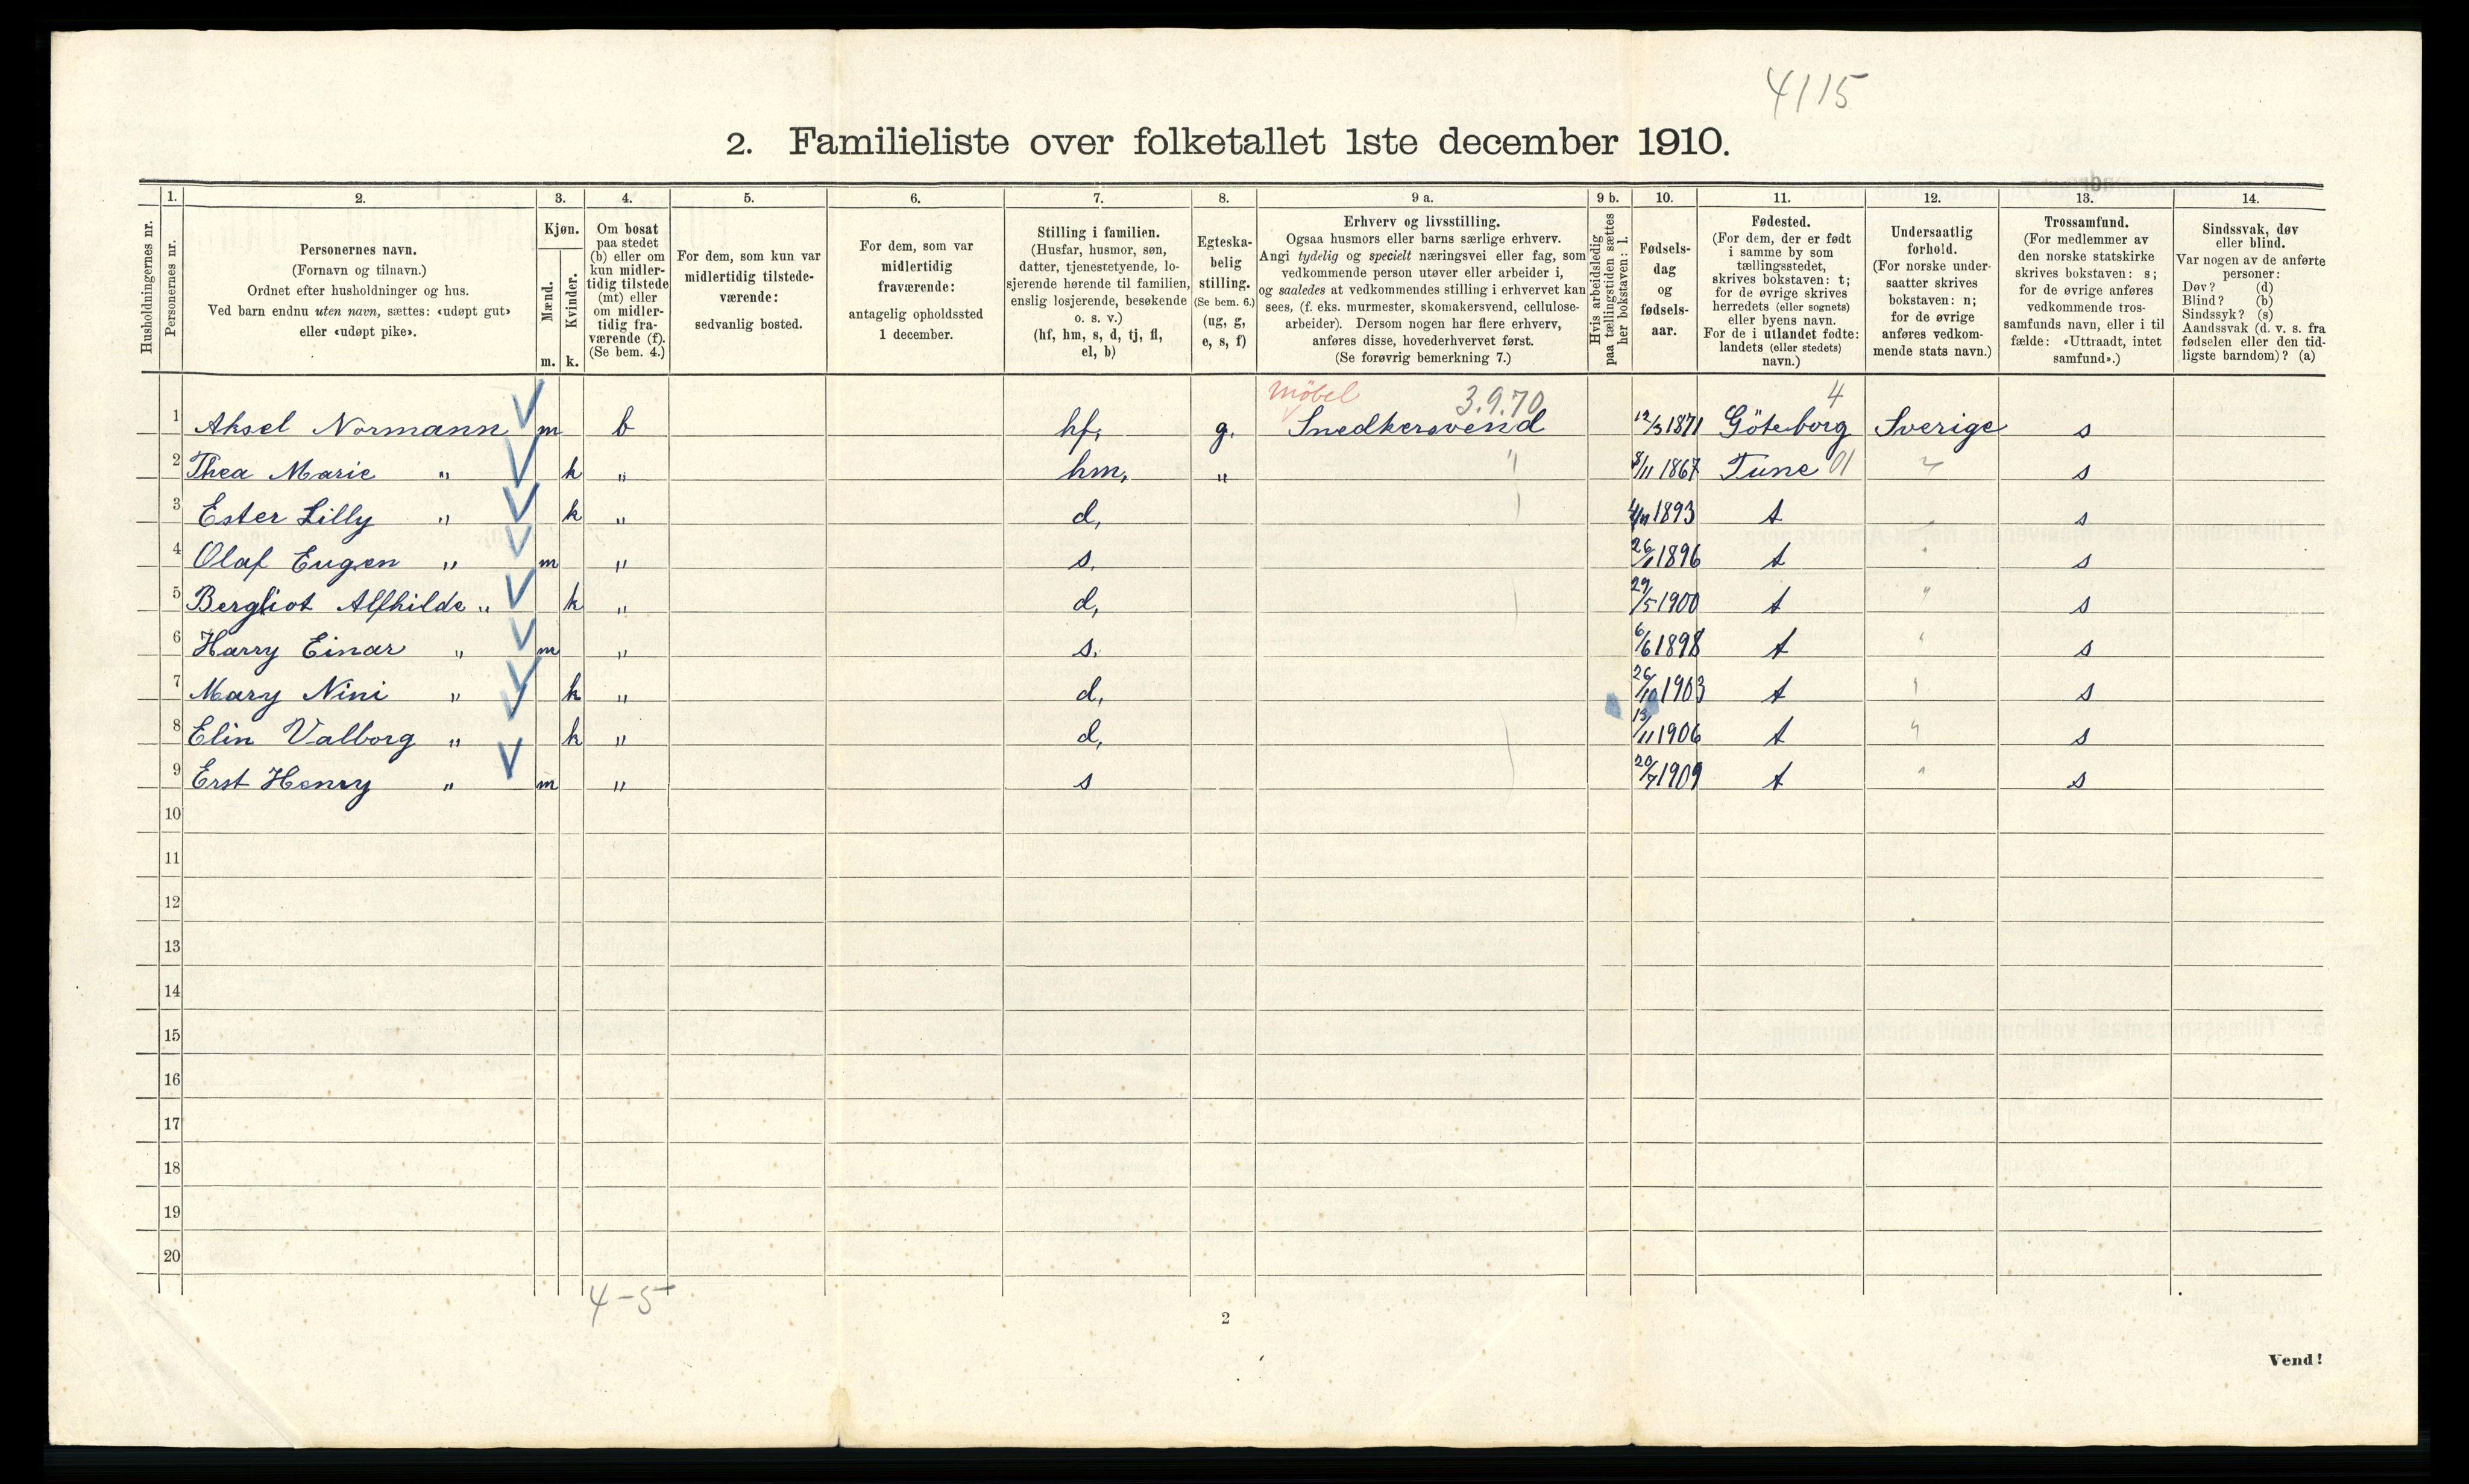 4115
2. Familieliste over folketallet 1ste december 1910.
Husholdningernes nr.
1. Personernes nr.
2. Personernes navn. (Fornavn og tilnavn.) Ordnet efter husholdninger og hus. Ved barn endnu uten navn, sættes: «udøpt gut» eller «udøpt pike».
3. Kjøn. Mænd. m. Kvinder. k.
4. Om bosat paa stedet (b) eller om kun midlertidig tilstede (mt) eller om midlertidig fraværende (f). (Se bem. 4.)
5. For dem, som kun var midlertidig tilstedeværende: sedvanlig bosted.
6. For dem, som var midlertidig fraværende: antagelig opholdssted 1 december.
7. Stilling i familien. (Husfar, husmor, søn, datter, tjenestetyende, losjerende hørende til familien, enslig losjerende, besøkende o. s. v.) (hf, hm, s, d, tj, fl, el, b)
8. Egteskabelig stilling. (Se bem. 6.) (ug, g, e, s, f)
9 a. Erhverv og livsstilling. Ogsaa husmors eller barns særlige erhverv. Angi tydelig og specielt næringsvei eller fag, som vedkommende person utøver eller arbeider i, og saaledes at vedkommendes stilling i erhvervet kan sees, (f. eks. murmester, skomakersvend, cellulosearbeider). Dersom nogen har flere erhverv, anføres disse, hovederhvervet først. (Se forøvrig bemerkning 7.)
9 b. Hvis arbeidsledig paa tællingstiden sættes her bokstaven: l.
10. Fødselsdag og fødselsaar.
11. Fødested. (For dem, der er født i samme by som tællingsstedet, skrives bokstaven: t; for de øvrige skrives herredets (eller sognets) eller byens navn. For de i utlandet fødte: landets (eller stedets) navn.)
12. Undersaatlig forhold. (For norske undersaatter skrives bokstaven: n; for de øvrige anføres vedkommende stats navn.)
13. Trossamfund. (For medlemmer av den norske statskirke skrives bokstaven: s; for de øvrige anføres vedkommende trossamfunds navn, eller i tilfælde: «Uttraadt, intet samfund».)
14. Sindssvak, døv eller blind. Var nogen av de anførte personer: Døv? (d) Blind? (b) Sindssyk? (s) Aandssvak (d. v. s. fra fødselen eller den tidligste barndom)? (a)
Möbel 3.9.70 4
1 Aksel Normann m b hf. g. Snedkersvend 12/3 1871 Göteborg Sverige s
2 Thea Marie " k " hm. " " 8/11 1867 Tune 01 " s
3 Ester Lilly " k " d, 1893 t s
4 Olaf Eugen " m " s. 1896 t " s
5 Bergliot Alfhilde " k " d, 29/5 1900 t " s
6 Harry Einar " m " s. 6/6 1898 t " s
7 Mary Nini " k " d, 26/10 1903 t " s
8 Elin Valborg " k " d, 13/11 1906 t " s
9 Erst Henry " m " s 20/7 1909 t " s
10
11
12
13
14
15
16
17
18
19
20
4-5
2
Vend!